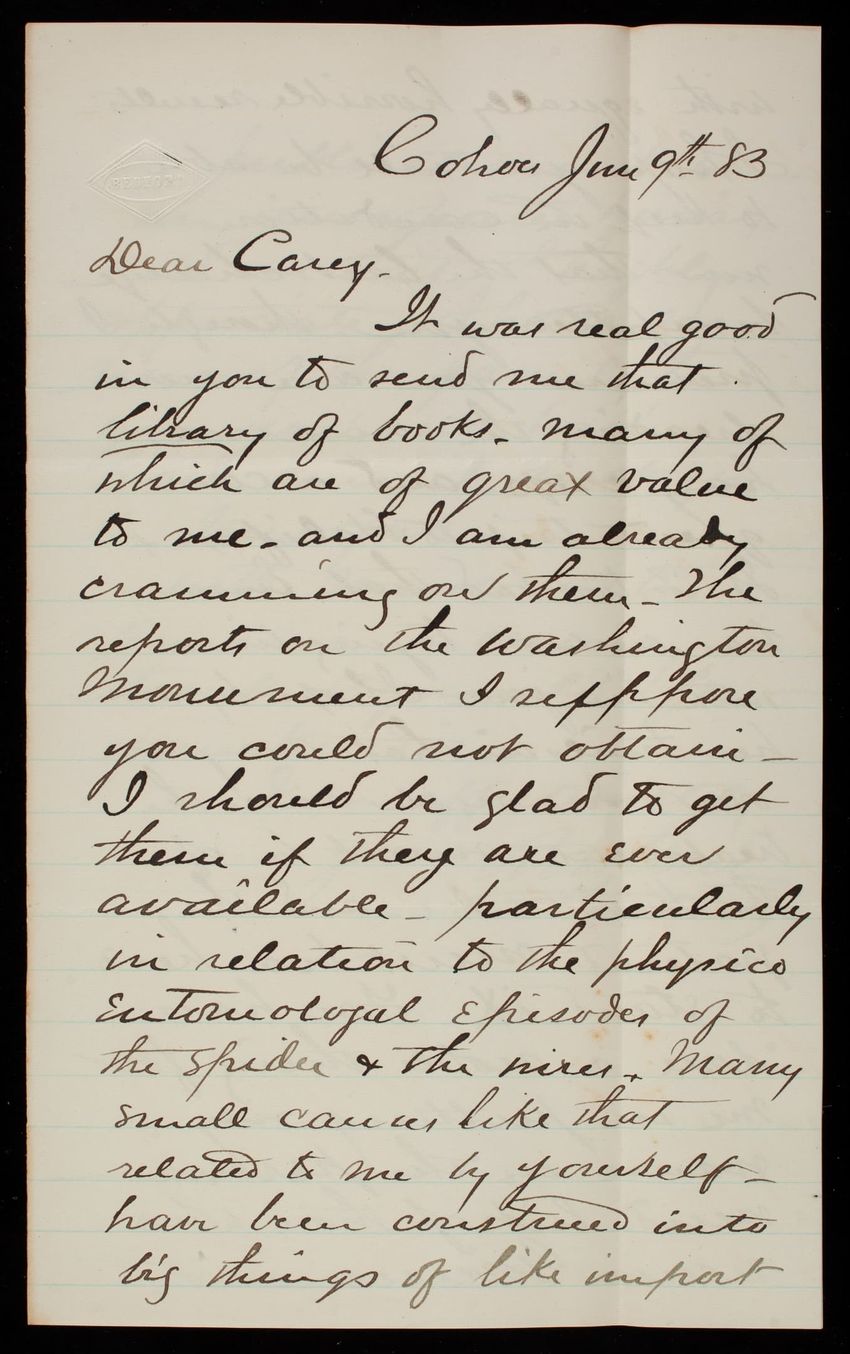 Cohoes June 9th 83
Dear Casey.
It was real good
in you to send me that
library of books. many of
which are of great value
to me. and I am already
cramming on them. The
reports on the Washington
Monument I suppose
you could not obtain -
I should be glad to get
them if they are ever
available - particularly
in relation to the physico
Entomologal Episodes of
the Spider & the wires. Many
small causes like that
related to me by yourself -
have been construed into
big things of like import